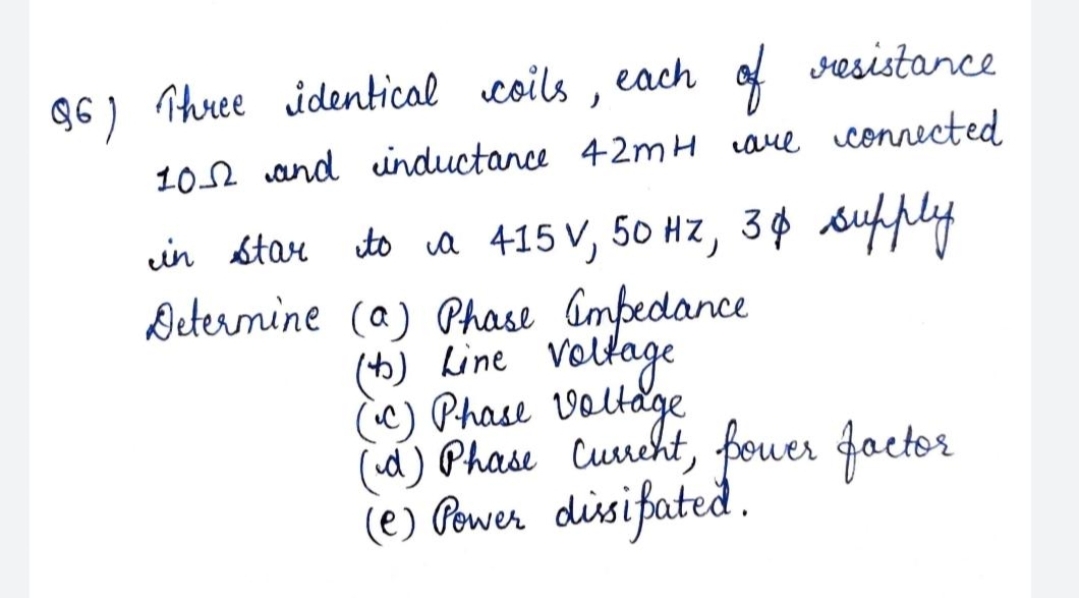 Q6) Three identical coils, each of resistance
10Ω and inductance 42mH are connected
in star to a 415 V, 50 HZ, 3ϕ supply
Determine (a) Phase impedance
(b) Line Voltage
(c) Phase Voltage
(d) Phase Current, power factor
(e) Power dissipated.